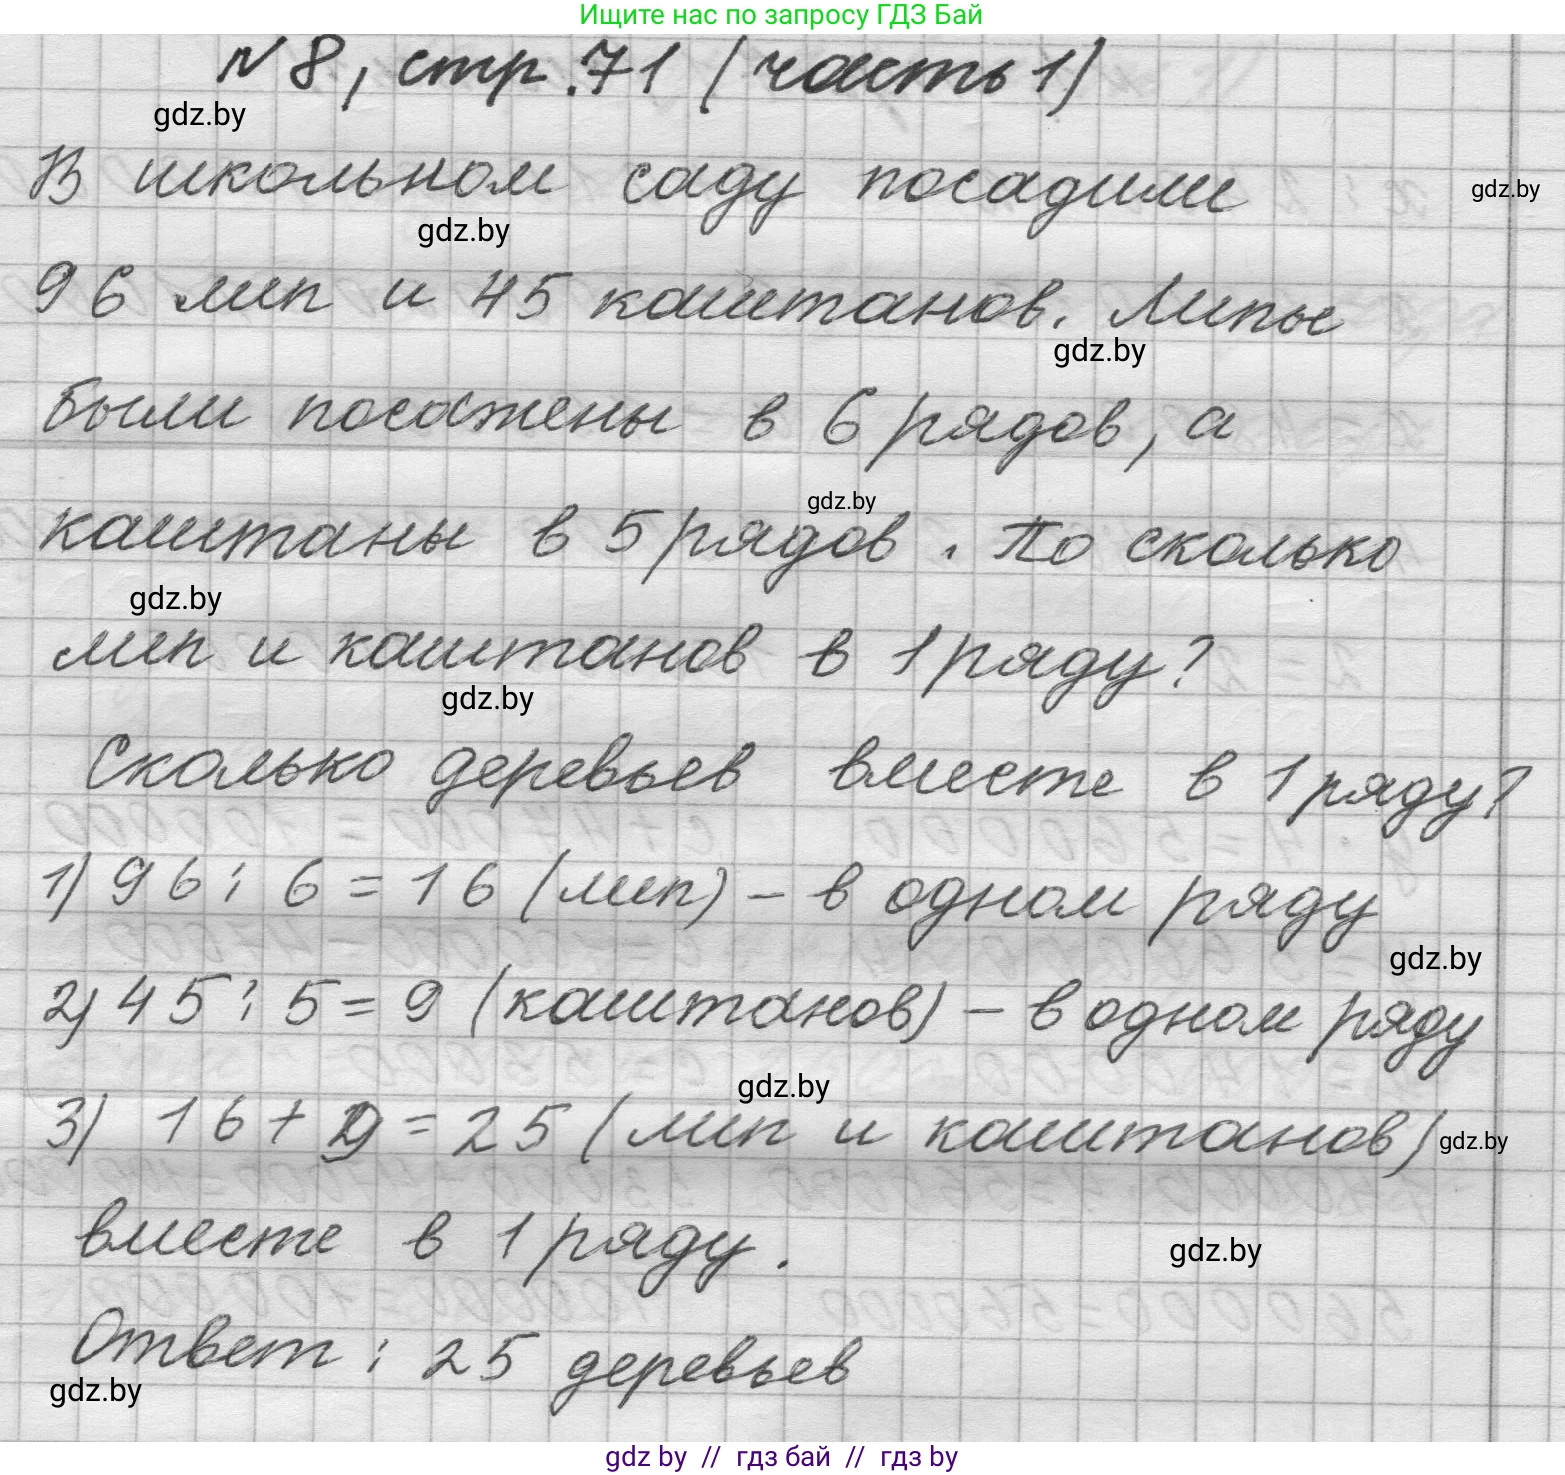 Ищите нас по запросу ГДЗ Бай
№ 8, стр. 71 (часть 1)
gdz.by
В школьном саду посадили
gdz.by
gdz.by
96 лип и 45 каштанов. Липы
gdz.by
были посажены в 6 рядов, а
gdz.by
каштаны в 5 рядов. По сколько
gdz.by
лип и каштанов в 1 ряду?
gdz.by
Сколько деревьев вместе в 1 ряду?
1) 96 : 6 = 16 (лип) – в одном ряду
gdz.by
2) 45 : 5 = 9 (каштанов) – в одном ряду
gdz.by
3) 16 + 9 = 25 (лип и каштанов)
gdz.by
вместе в 1 ряду.
gdz.by
Ответ: 25 деревьев
gdz.by
gdz by // гдз бай // гдз by